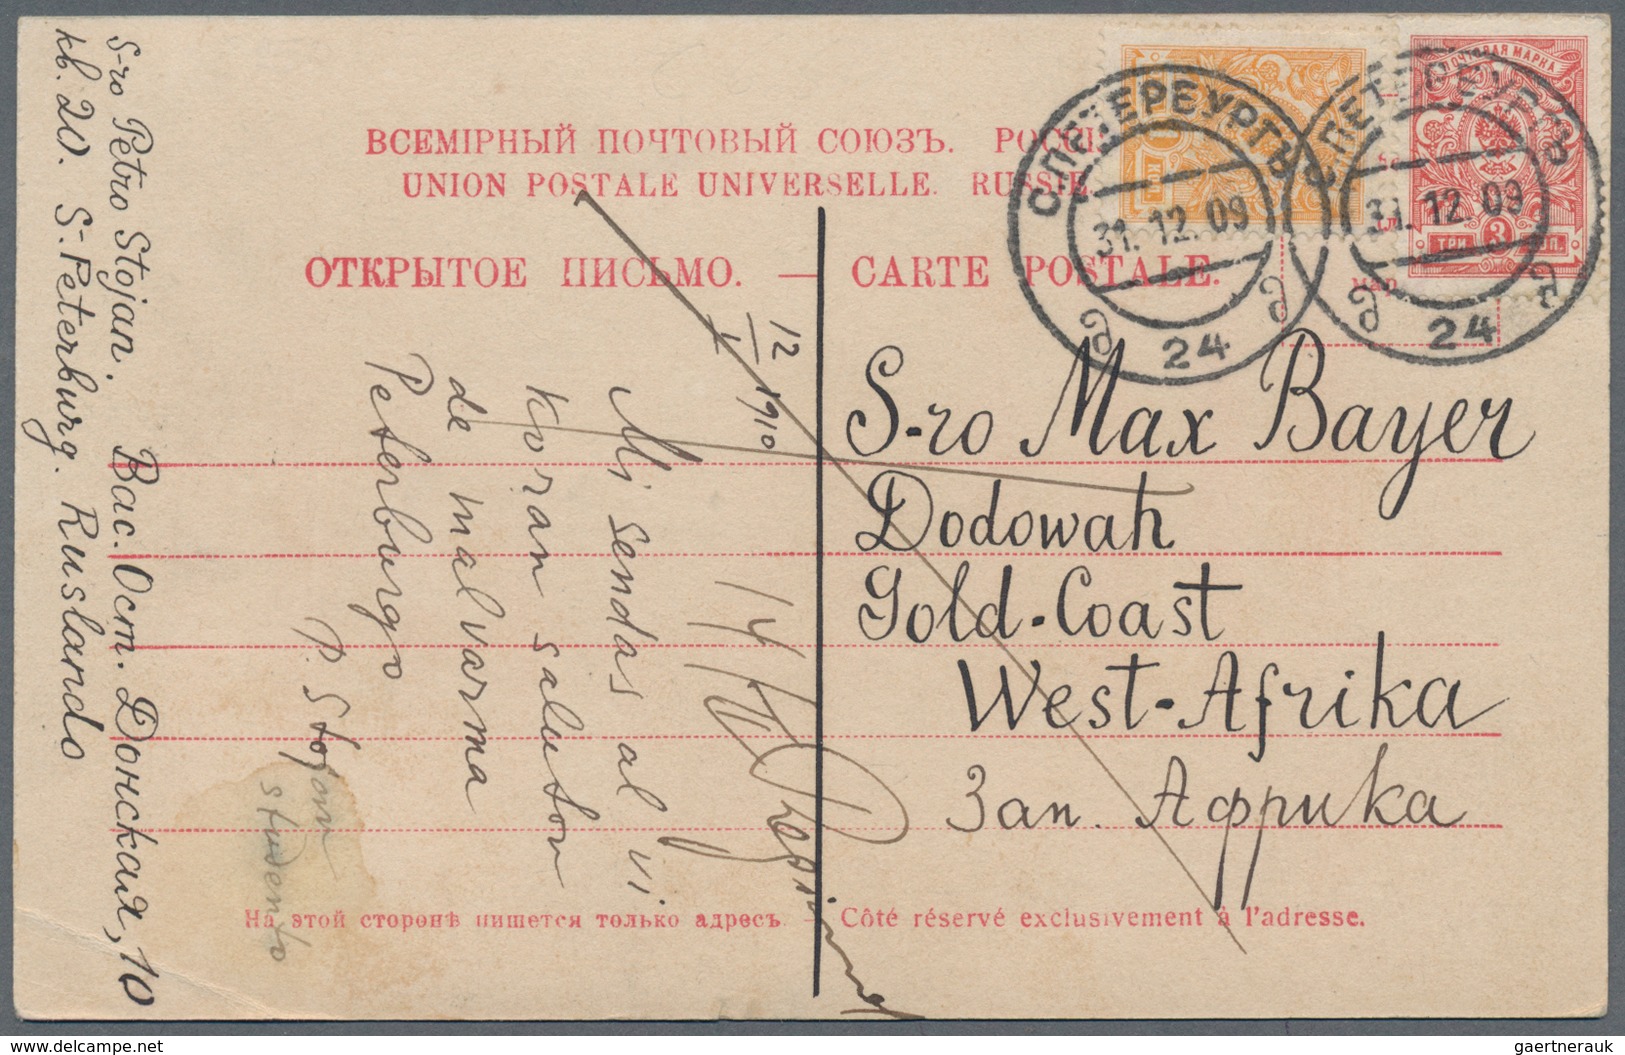 ВСЕМІРНЫЙ ПОЧТОВЫЙ СОЮЗЪ. РОССІ
UNION POSTALE UNIVERSELLE. RUSSIE
ОТКРЫТОЕ ПИСЬМО. — CARTE POSTALE.
ПОЧТОВАЯ МАРКА
ТРИ 3 КОП.
С.ПЕТЕРБУРГЪ
31.12.09
24
С.ПЕТЕРБУРГЪ
31.12.09
24
мар
S-ro Max Bayer
Dodowah
Gold-Coast
West-Afrika
Зап. Африка
12
1 1910
Mi sendas al vi
koran saluton
de malvarma
Peterburgo
P. Stojan
studento
14/IV
S-ro Petro Stojan.
Вас. Ост. Донская, 10
кв. 20. S-Peterburg. Ruslando
На этой сторонѣ пишется только адресъ. — Côté réservé exclusivement à l'adresse.
gaertnerauk